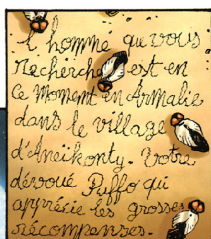 L'homme que vous
recherchez est en
ce moment en Armalie
dans le village
d'Aneïkonty. Votre
dévoué Puffo qui
apprécie les grosses
récompenses.